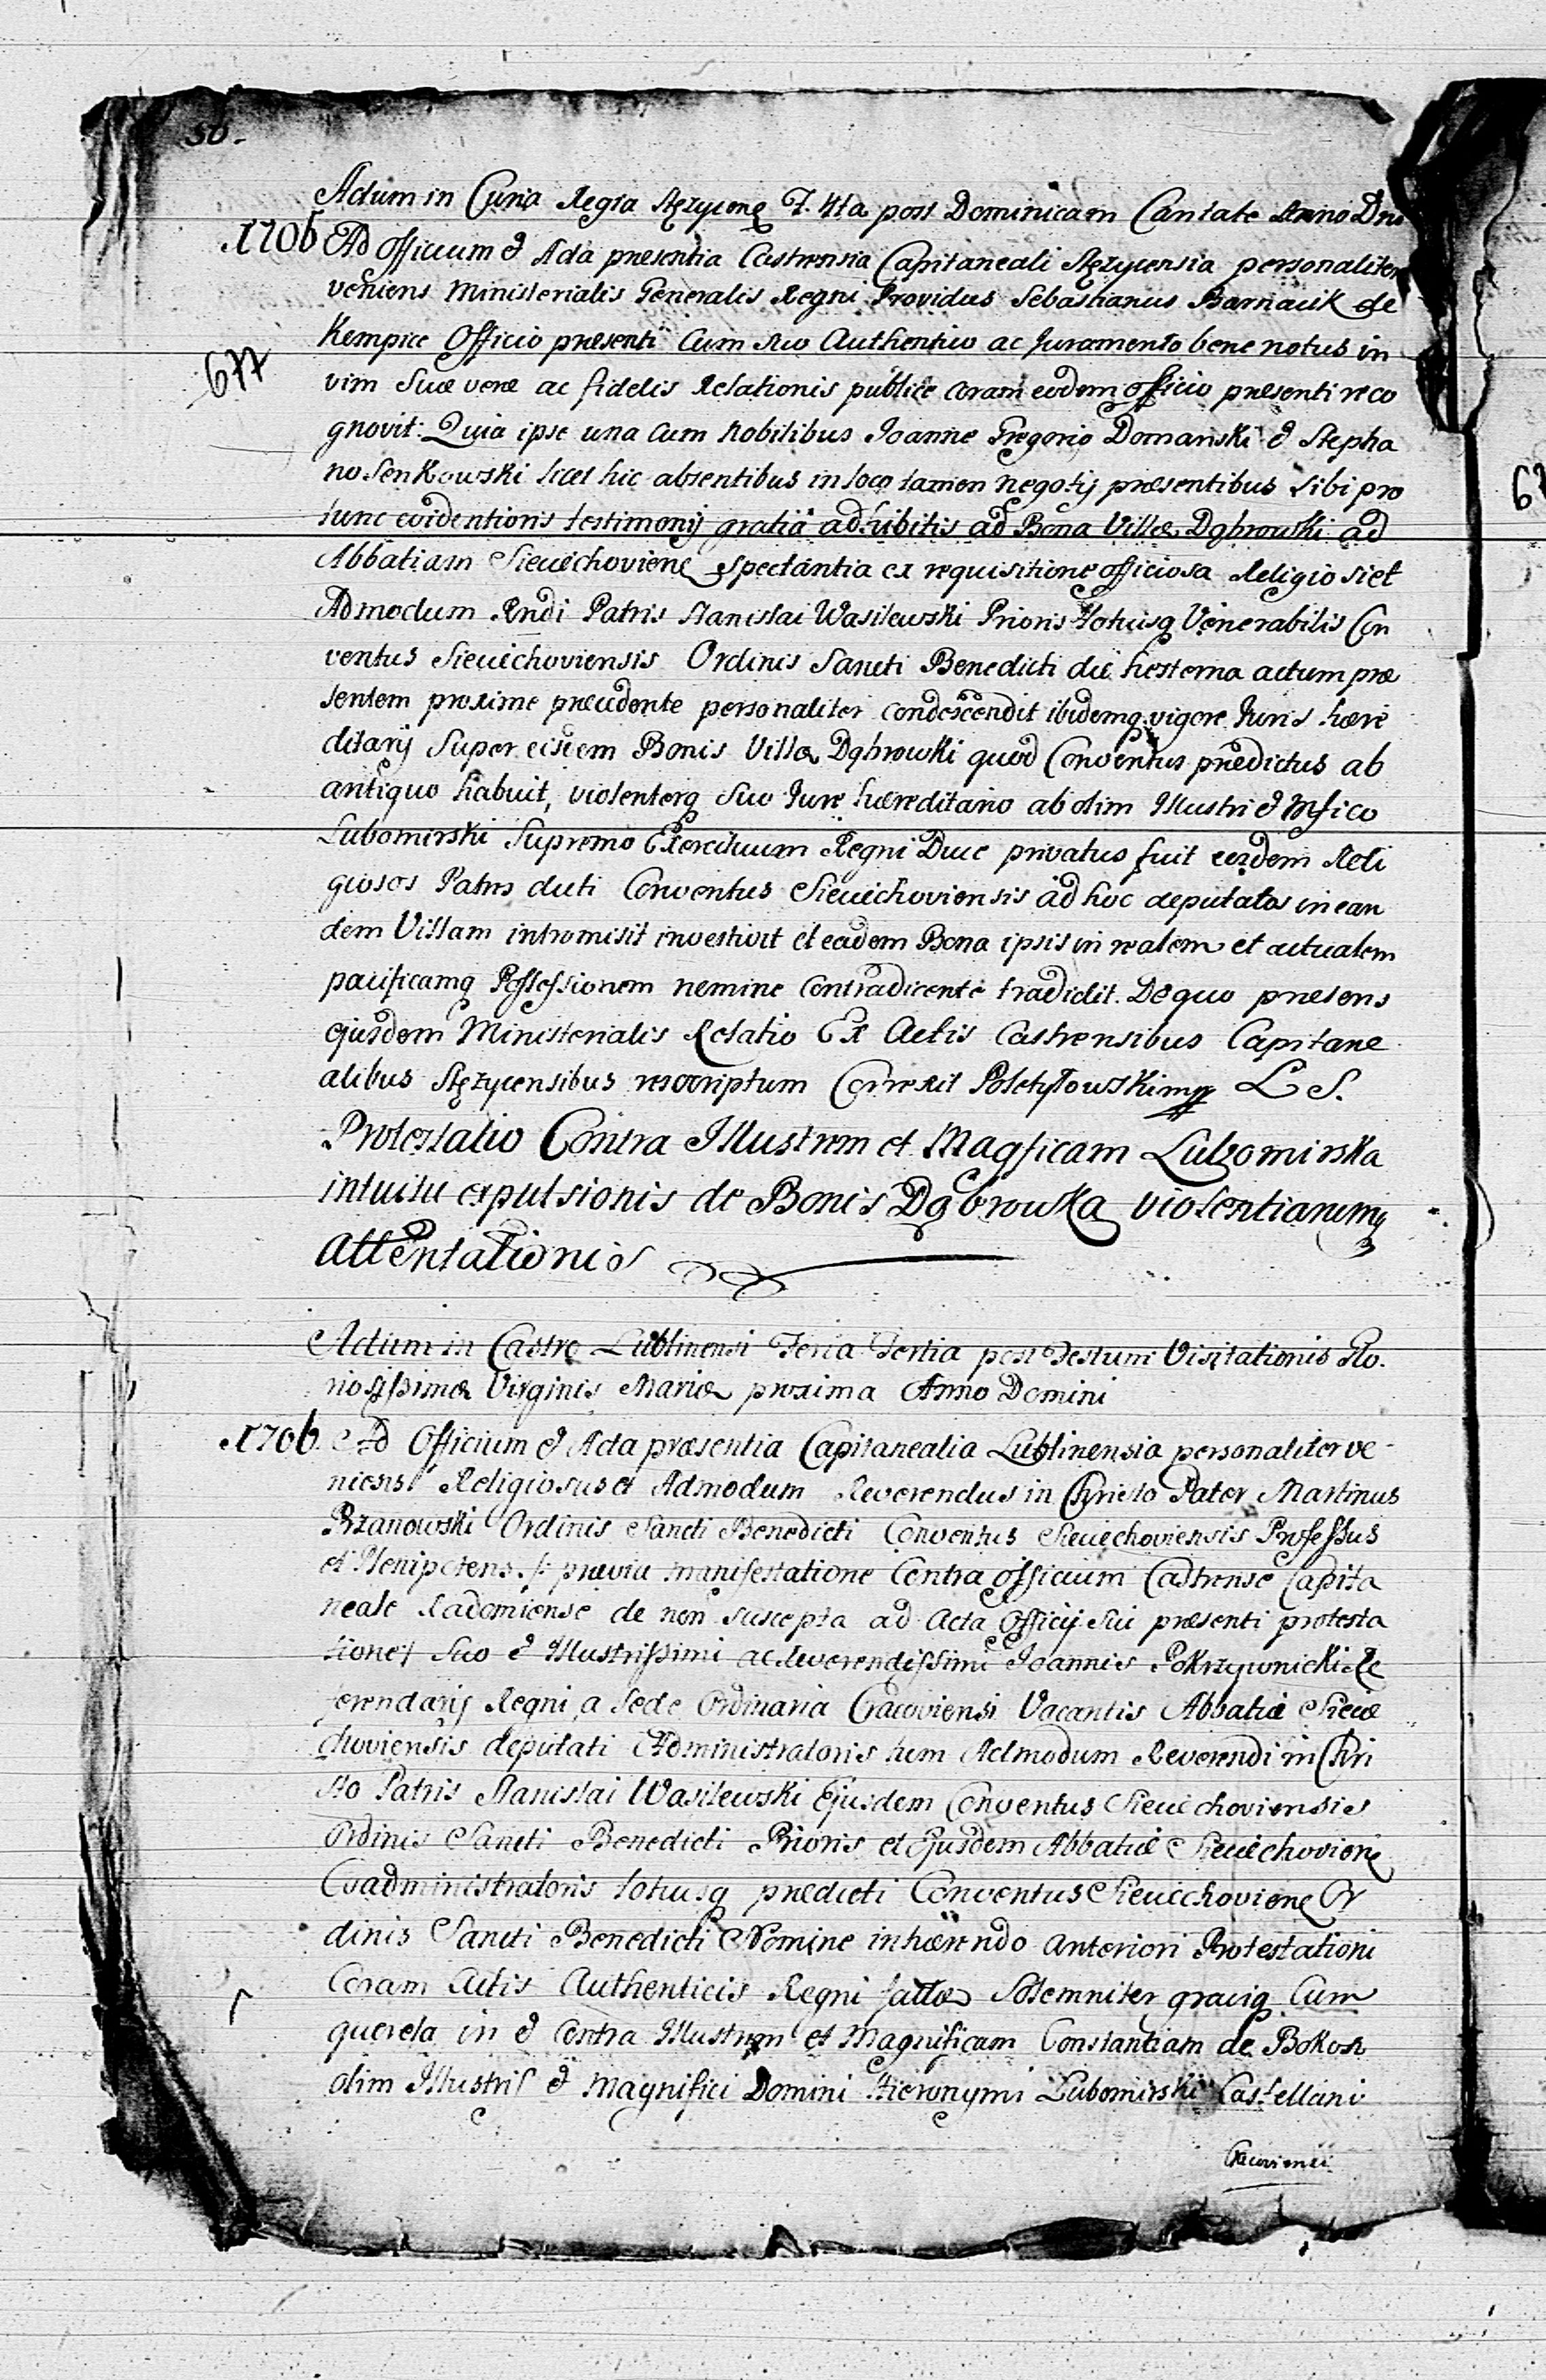 50.
Actum in Curia Regia Stęzycenę F. 4ta post Dominicam Cantate Anno Dni
1706 Ad Officium & Acta presentia Castrensia Capitaneali Stęzycensia personaliter
veniens Ministerialis Generalis Regni Providus Sebastianus Barnacik de
Kempice Officio præsenti Cum suo Authentico ac Juramento bene notus in
677
vim Suæ veræ ac fidelis Relationis publicè coram eodem officio præsenti reco
gnovit: Quia ipse una cum Nobilibus Joanne Gregorio Domanski & Stepha
no Senkowski licet hic absentibus in loco tamen negotij præsentibus sibi pro
tunc evidentioris testimonij gratiâ adhibitis ad Bona Villæ Dąbrowki ad
Abbatiam Sieciechovienę spectantia ex requisitione officiosa Religiosi et
Admodum Rndi Patris Stanislai Wasilewski Prioris totiusq Venerabilis Con
ventus Sieciechoviensis Ordinis Sancti Benedicti die hesterna actum præ
sentem proxime præcedente personaliter condescendit ibidemq vigore Juris hære
ditarij super eisdem Bonis Villæ Dąbrowki quod Conventus prædictus ab
antiquo habuit, violenterq suo Jure hæreditario ab olim Illustri & Mfico
Lubomirski Supremo Exercituum Regni Duce privatus fuit eosdem Reli
giosos Patres dicti Conventus Sieciechoviensis ad hoc deputatos in ean
dem Villam intromisit investivit et eadem Bona ipsis in realem et actualem
pacificamq Possessionem nemine contradicente tradidit. De quo præsens
ejusdem Ministerialis Relatio Ex Actis Castrensibus Capitane
alibus Stęzycensibus rescriptum Correxit Poletyłowski mpp L S.
Protestatio Contra Illustrem et Magficam Lubomirska
intuitu expulsionis de Bonis Dąbrowka violentiarumq
attentationis
Actum in Castro Lublinensi Feria Tertia post Festum Visitationis Glo.
riosissimæ Virginis Mariæ proxima Anno Domini
1706. Ad Officium & Acta præsentia Capitanealia Lublinensia personaliter ve-
niens Religiosus et Admodum Reverendus in Christo Pater Martinus
Rzanowski Ordinis Sancti Benedicti Conventus Sieciechoviensis Professus
et Plenipotens /: prævia manifestatione Contra officium Castrense Capita
neale Radomiense de non suscepta ad Acta Officij Sui præsenti protesta
tione :/ Suo & Illustrissimi ac Reverendissimi Joannis Pokrzywnicki Re
ferendarij Regni a Sede Ordinaria Cracoviensi Vacantis Abbatiæ Siecie
choviensis deputati Administratoris tum Admodum Reverendi in Chri
sto Patris Stanislai Wasilewski Ejusdem Conventus Sieciechoviensis
Ordinis Sancti Benedicti Prioris et Ejusdem Abbatiæ Sieciechovienę
Coadministratoris totiusq prædicti Conventus Sieciechovienę Or
dinis Sancti Benedicti Nomine inhærendo anteriori Protestationi
Coram Actis Authenticis Regni factæ Solemniter graviq Cum
querela in & Contra Illustrem et Magnificam Constantiam de Bokow
olim Illustris & Magnifici Domini Hieronymi Lubomirski Castellani
Cracoviensi